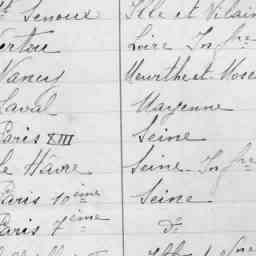 St Senoux Ille et Vilain
Vertou Loire Infre
Nancy Meurthe et Mose
Laval Mayenne
Paris XIII Seine
Le Havre Seine-Infre
Paris 10ème Seine
Paris 7ème do